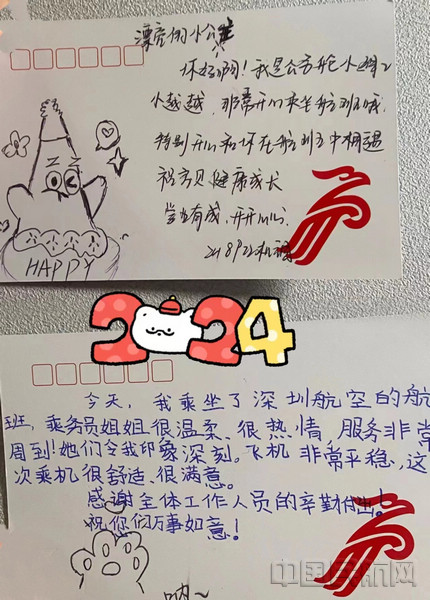 漂亮的小公主
你好啊！我是
小越越，非常开心来坐航班哦
特别开心和你在航班中相遇
祝宝贝健康成长
学业有成，开开心心
HAPPY
2024
今天，我乘坐了深圳航空的航
班，乘务员姐姐很温柔、很热情，服务非常
周到！她们令我印象深刻。飞机非常平稳，这
次乘机很舒适、很满意。
感谢全体工作人员的辛勤付出！
祝您们万事如意！
呐~
中国民航网